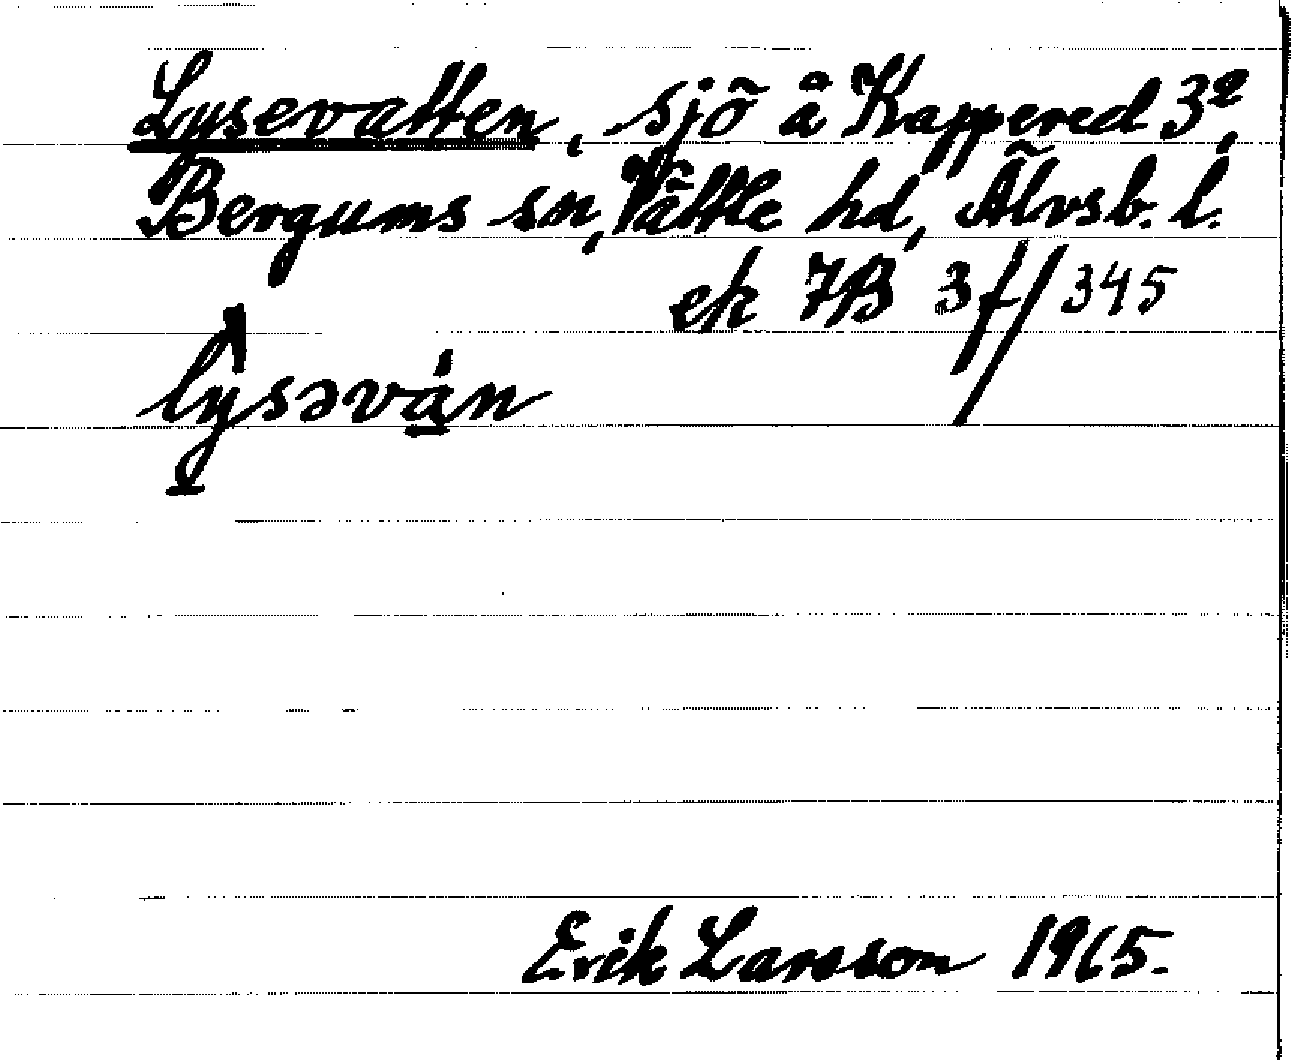 Lysevatten, sjö å Kappered 3²,
Bergums sn, Vättle hd, Älvsb. l.
ek 7B 3f/345
lysəván
Erik Larsson 1965.